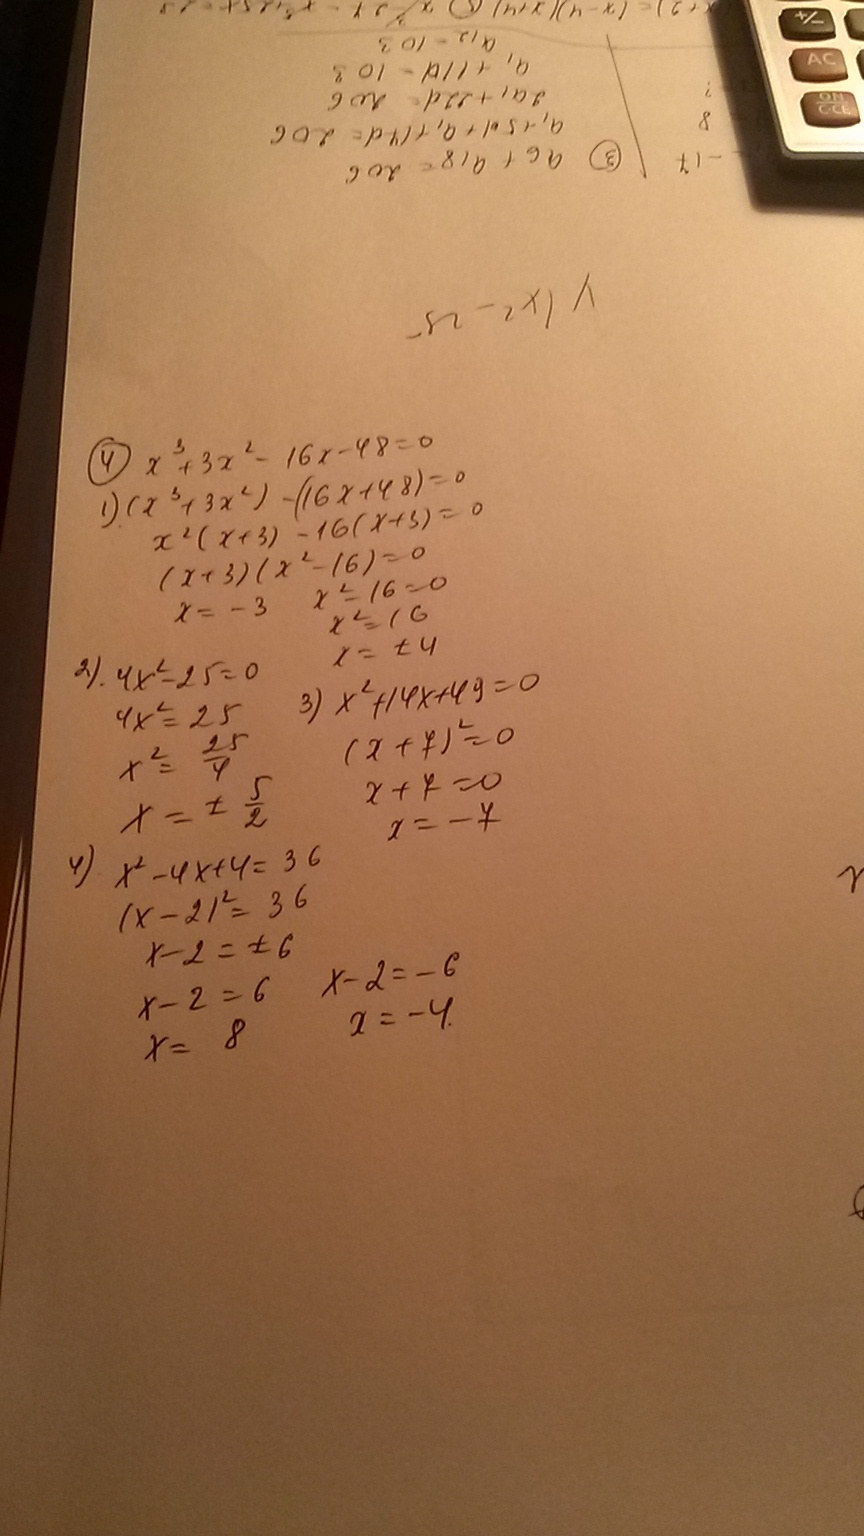 a₁₂ = 103
a₁ + 11d = 103
2a₁ + 22d = 206
a₁ + 5d + a₁ + 17d = 206
③ a6 + a18 = 206
8
-17
+/-
AC
ON
C·CE
④ x³ + 3x² - 16x - 48 = 0
1) (x³ + 3x²) - (16x + 48) = 0
x²(x + 3) - 16(x + 3) = 0
(x + 3)(x² - 16) = 0
x = -3 x² - 16 = 0
x² = 16
x = ±4
2). 4x² - 25 = 0
4x² = 25
x² = 25/4
x = ± 5/2
3) x² + 14x + 49 = 0
(x + 7)² = 0
x + 7 = 0
x = -7
4) x² - 4x + 4 = 36
(x - 2)² = 36
x - 2 = ±6
x - 2 = 6 x - 2 = -6
x = 8 x = -4.